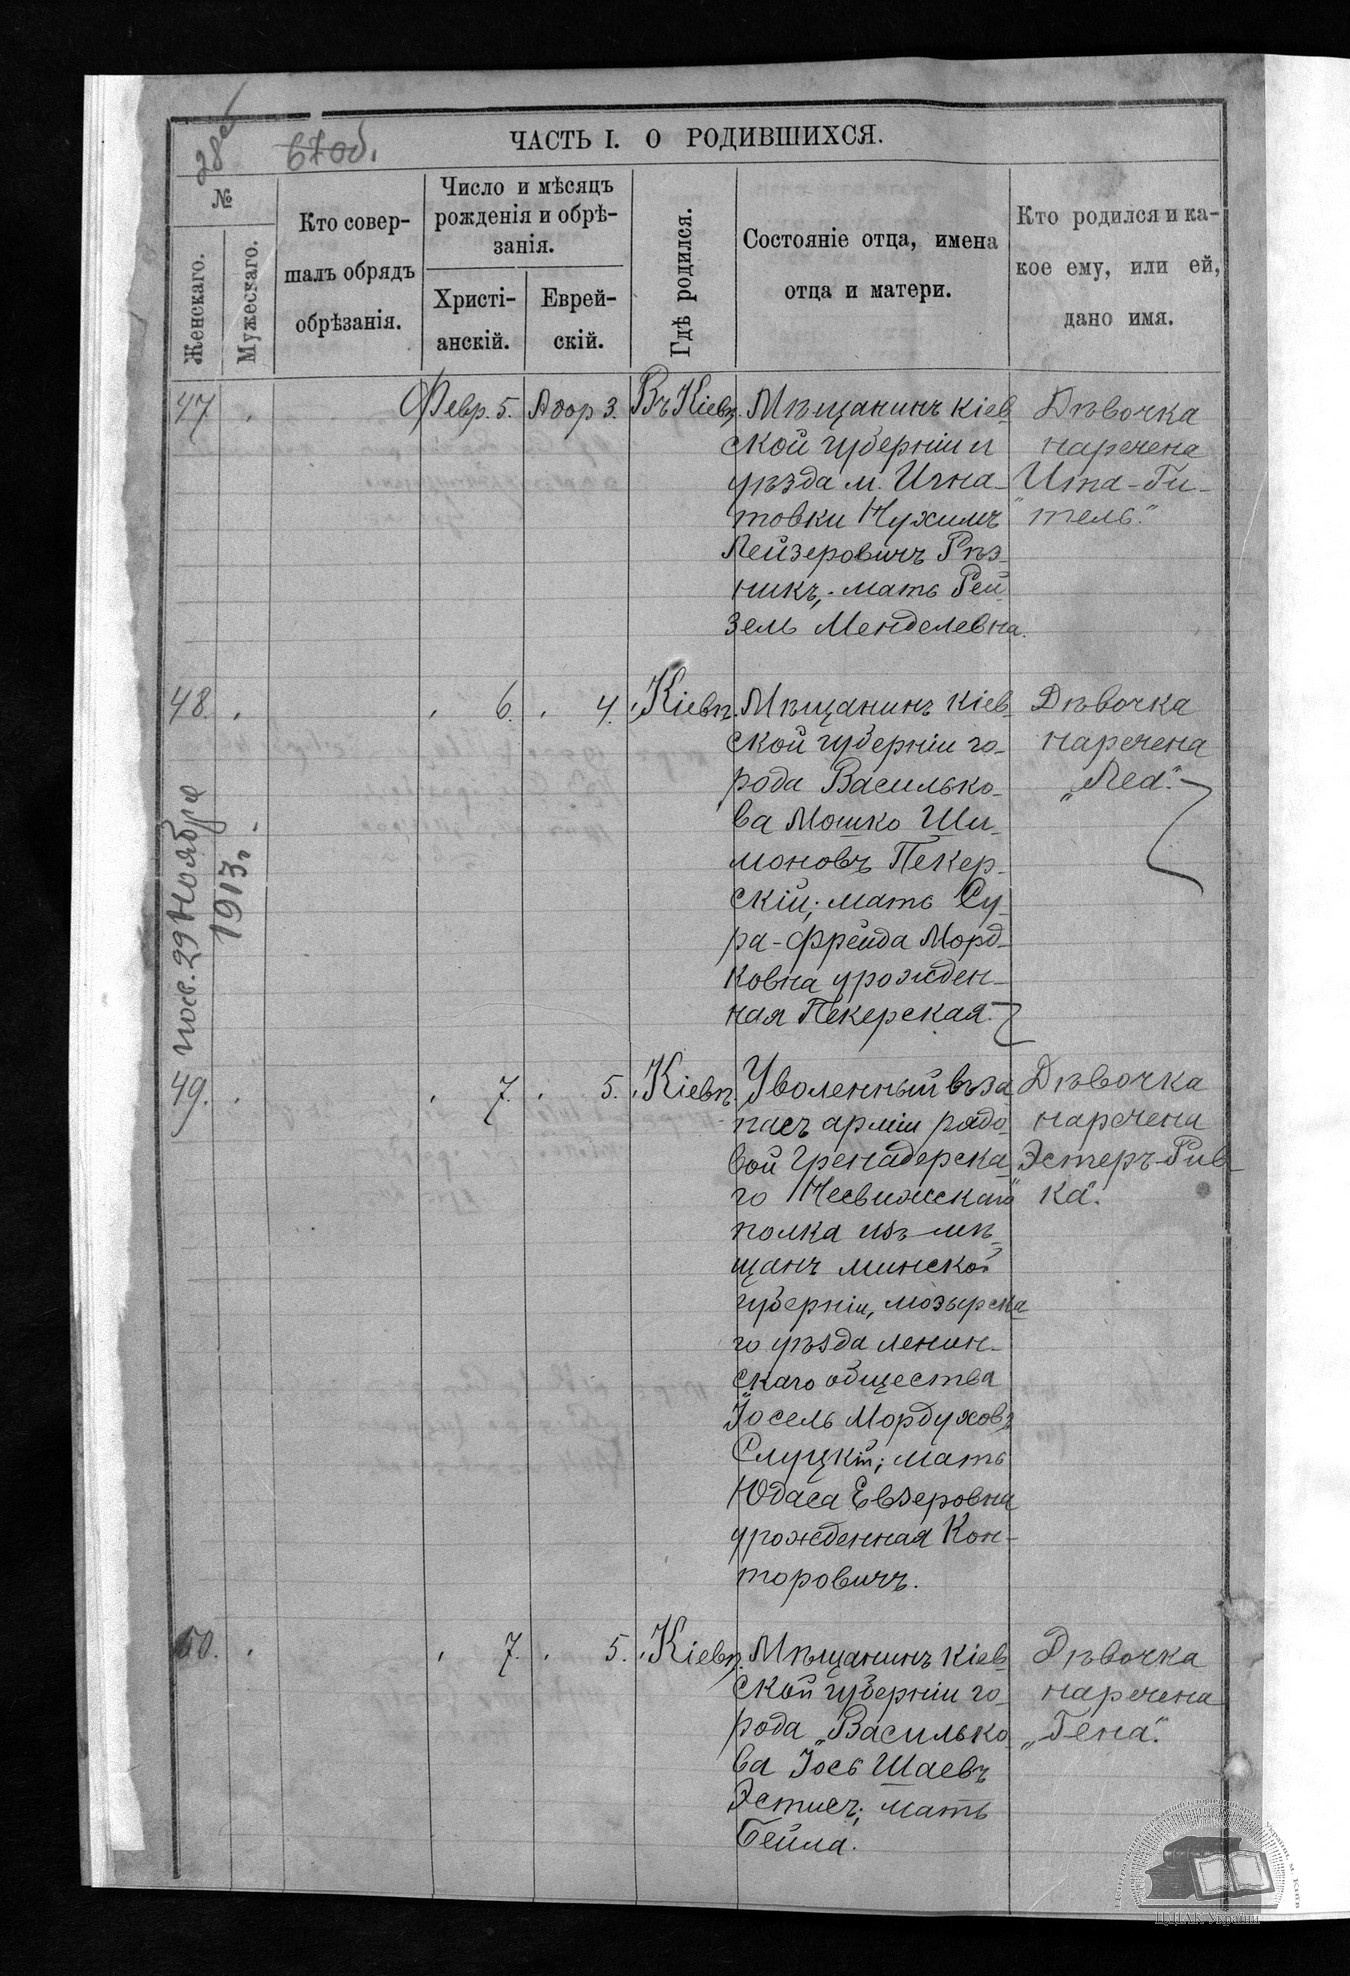 28об
67об.
ЧАСТЬ I. О РОДИВШИХСЯ.
№
Женскаго.
Мужескаго.
Кто совер-
шалъ обрядъ
обрѣзанія.
Число и мѣсяцъ
рожденія и обрѣ-
занія.
Христі-
анскій.
Еврей-
скій.
Гдѣ родился.
Состояніе отца, имена
отца и матери.
Кто родился и ка-
кое ему, или ей,
дано имя.
47
Февр. 5.
Адор 3.
Въ Кіевѣ.
Мѣщанинъ Кіев-
ской губерніи и
уѣзда м. Игна-
товки Нухимъ
Лейзеровичъ Рѣз-
никъ; мать Рей-
зель Менделевна.
Дѣвочка
наречена
Ита-Ги-
"тель".
48.
6.
4.
Кіевѣ.
Мѣщанинъ Кіев-
ской губерніи го-
рода Василько-
ва Мошко Ши-
моновъ Пекер-
скій; мать Су-
ра-Фрейда Морд-
ковна урожден-
ная Пекерская.
Дѣвочка
наречена
„Леа".
посв. 29 Ноября
1913 г.
49.
7.
5.
Кіевѣ.
Уволенный въ за
пасъ арміи рядо-
вой Гренадерска-
го Несвижскаго
полка изъ мѣ-
щанъ минской
губерніи, мозырска-
го уѣзда ленин-
скаго общества
Іосель Мордуховъ
Слуцкій; мать
Юдаса Евзеровна
урожденная Кон-
торовичъ.
Дѣвочка
наречена
Эстеръ-Рив-
"ка".
50.
7.
5.
Кіевѣ.
Мѣщанинъ Кіев-
ской губерніи го-
рода Василько-
ва Іось Шаевъ
Эстисъ; мать
Бейла.
Дѣвочка
наречена
„Гена".
ЦДІАК України